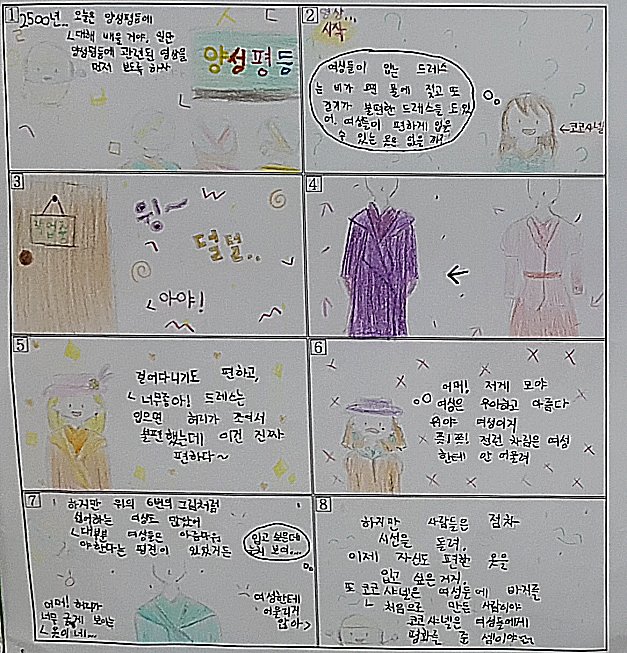 1
2500년... 오늘은 양성평등에
대해 배울 거야, 일단
양성평등에 관련된 영상을
먼저 보도록 하자
양성평등
2
영상...
시작
여성들이 입는 드레스
는 비가 오면 물에 젖고 또
걷기가 불편한 드레스들도 있
어. 여성들이 편하게 입을
수 있는 옷은 없을 까?
←코코샤넬
3
작업중
윙~
덜덜..
아야!
4
5
걸어다니기도 편하고,
너무좋아! 드레스는
입으면 허리가 조여서
불편했는데 이건 진짜
편하다~
6
어머! 저게 모야
여성은 우아하고 아름다
워야 여성이지
쯧!쯧! 저런 차림은 여성
한테 안 어울려
7
하지만 위의 6번의 그림처럼
싫어하는 여성도 많았어
대부분 여성들은 아름다워
야한다는 편견이 있었거든
입고 싶은데
눈치 보여...
어머! 허리가
너무 굵게 보이는
옷이네...
여성한테
어울리지
않아>
8
하지만 사람들은 점차
시선을 돌려,
이제! 자신도 편한 옷을
입고 싶은거지,
또 코코 샤넬은 여성들에 바지를
처음으로 만든 사람이야
코코샤넬은 여성들에게
평화를 준 셈이야